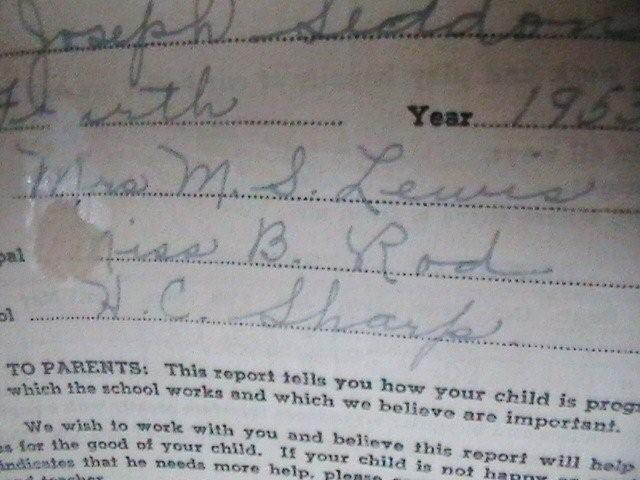 Joseph Seddon
Fourth Year 1953
Mrs M. S. Lewis
pal Miss B. Rod
ol H. C. Sharp
TO PARENTS: This report tells you how your child is prog
which the school works and which we believe are important.
We wish to work with you and believe this report will help
es for the good of your child. If your child is not happy
indicates that he needs more help, please